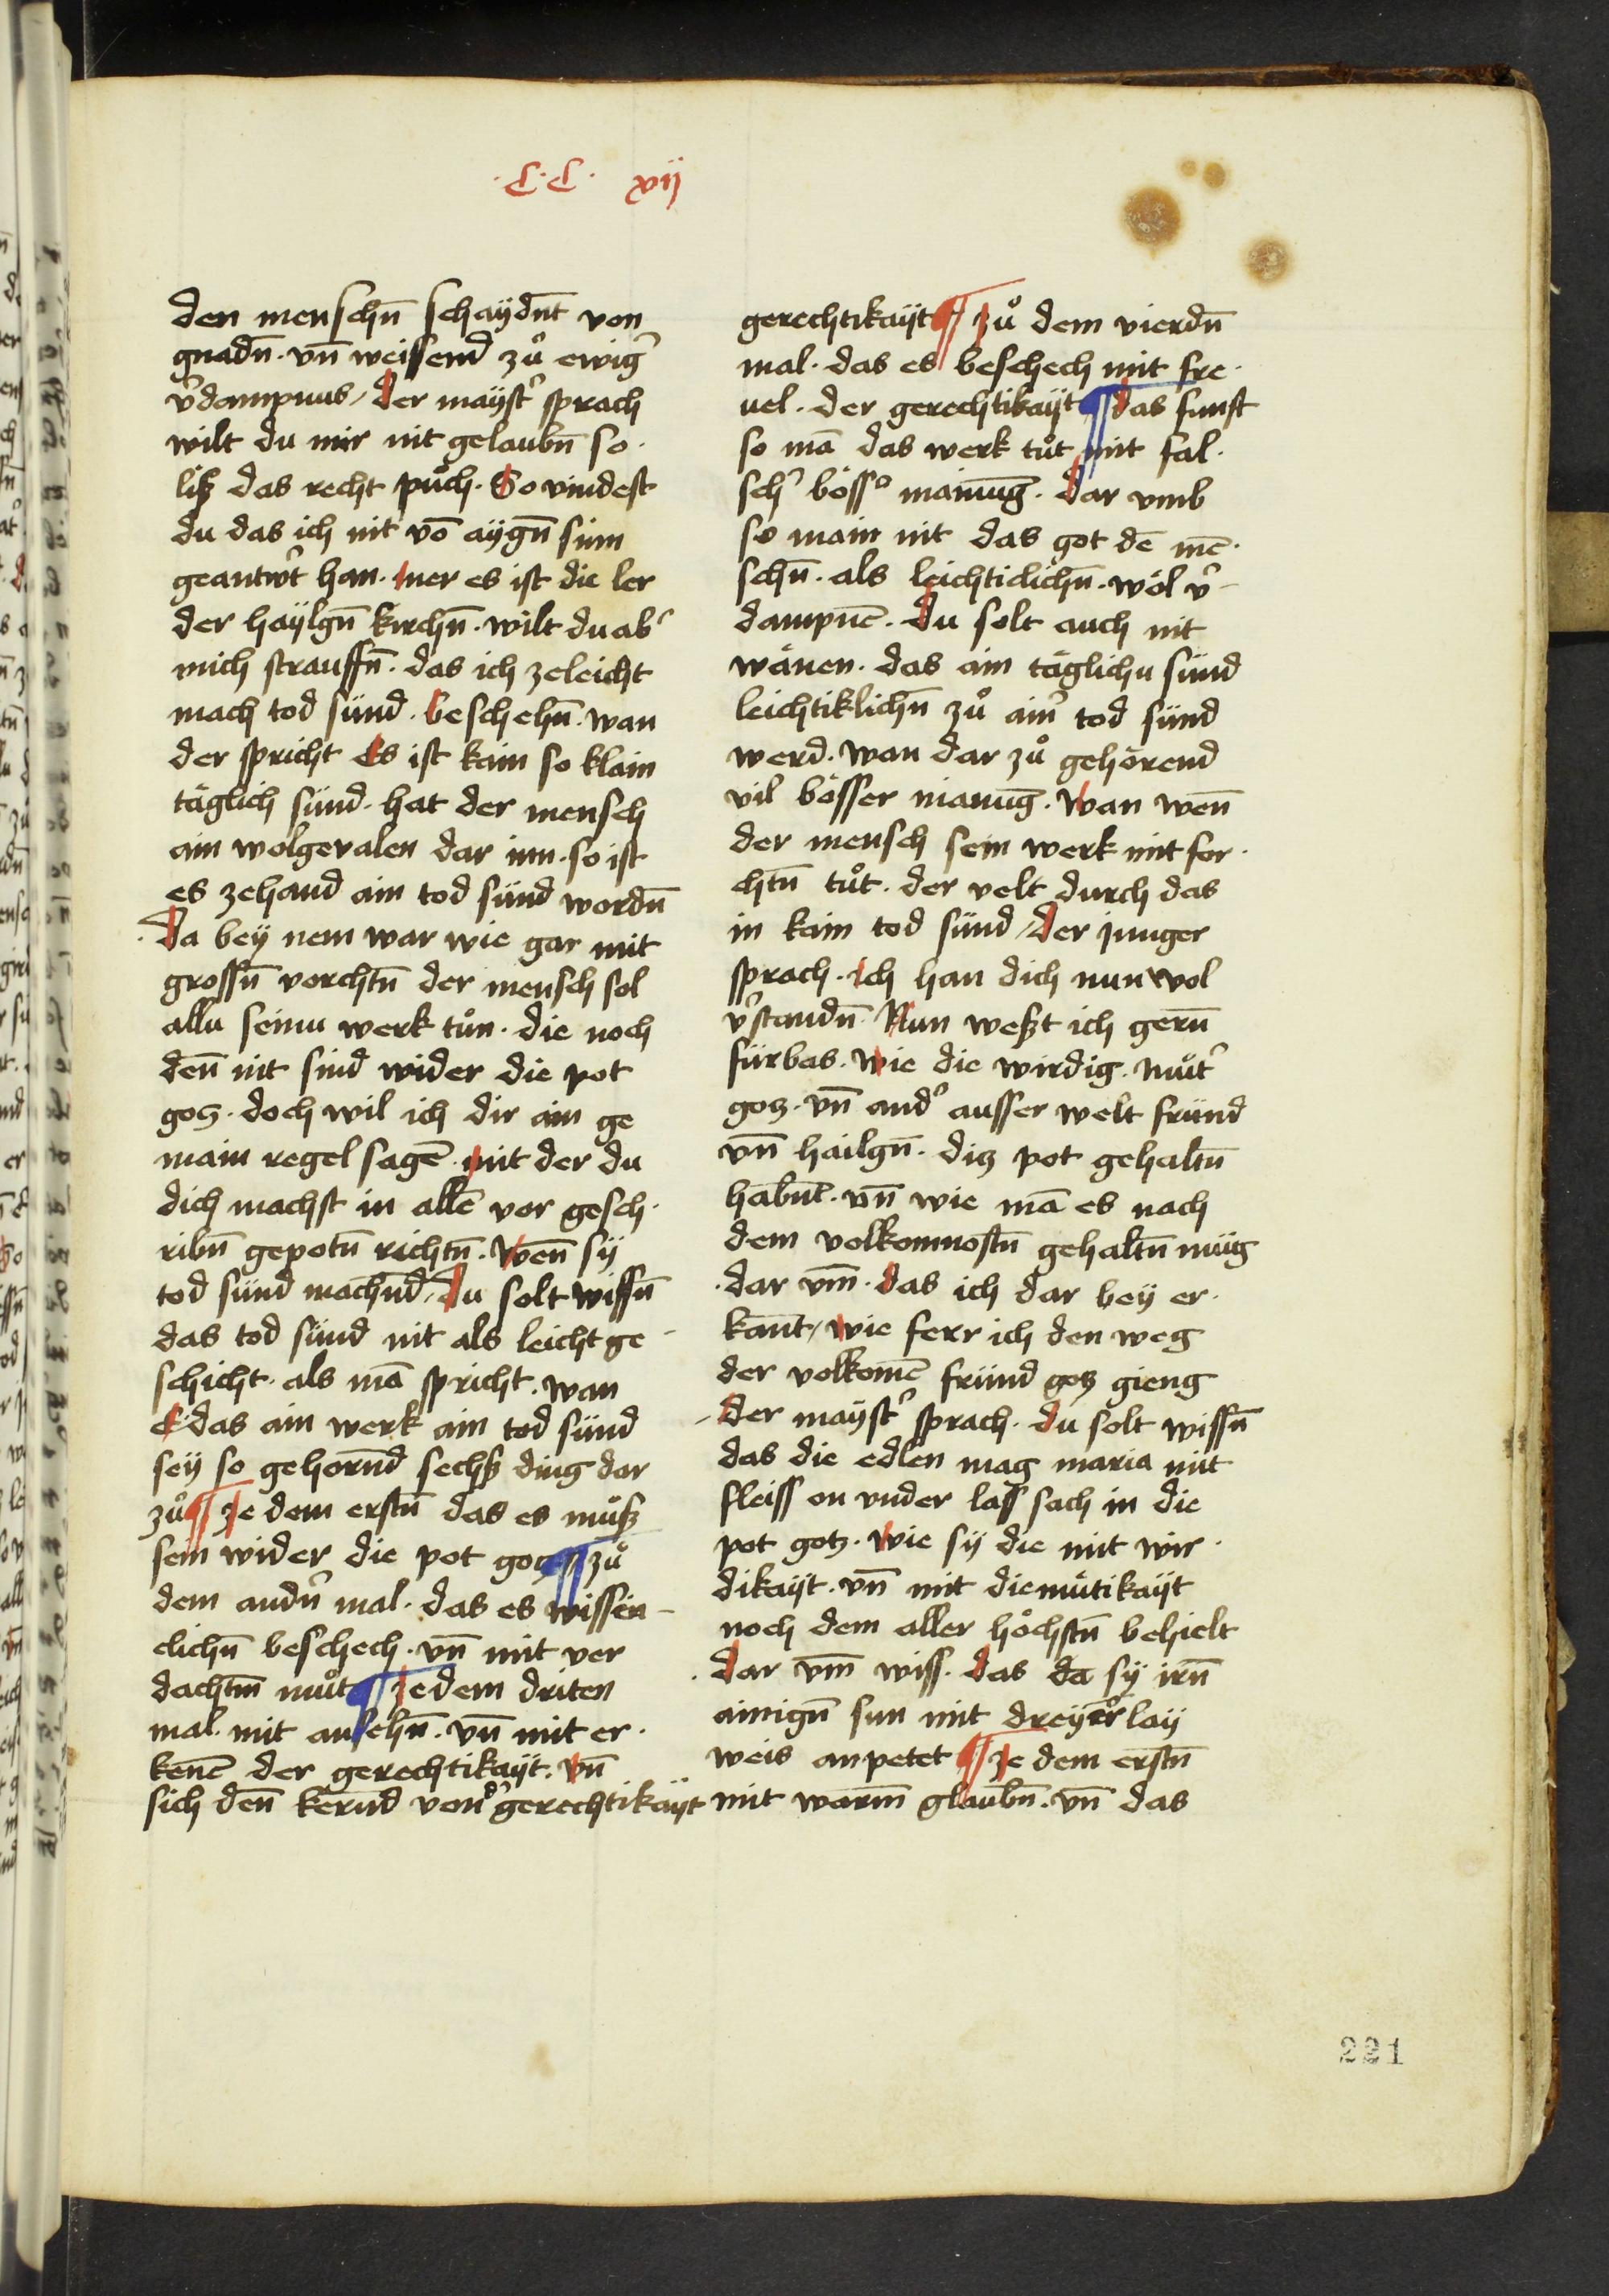 ·C·C· xvij
den menschn̄ schaydn̄t von
gnadn̄· vn̄ weissend zuͦ ewig᷑
v᷑dampnus / der mayst᷑ sprach
wilt du mir nit gelaubn̄ so·
liß das recht puͦch· So vindest
du das ich nit vō aygn̄ sinn
geantw᷑t han· mer es ist die ler
der haylgn̄ kirchn̄· wilt du ab᷑
mich strauffn̄· das ich zeleicht
mach tod sünd· beschehn̄· wan
der spricht Es ist kain so klain
täglich sünd· hat der mensch
ain wolgevalen dar inn· so ist
es zehand ain tod sünd wordn̄
·Da bey nem war wie gar mit
grossn̄ vorchtn̄ der mensch sol
allu seinu werk tuͦn· die noch
den̄ nit sind wider die pot
gotz· doch wil ich dir ain ge
main regel sagē· mit der du
dich machst in allē vor gesch·
ribn̄ gepotn̄ richtn̄· Wen̄ sÿ
tod sünd machn̄d / du solt wissn̄
das tod sünd nit als leicht ge-
schicht· als mā spricht· wan
E das ain werk ain tod sünd
seÿ so gehorn̄d sechß ding dar
zuͦ ¶ Ze dem erstn̄ das es muͦß
sein wider die pot gotz ¶ zuͦ
dem andn᷑ mal· das es wissen-
clichn̄ beschech· vn̄ mit ver
dachtm̄ muͦt ¶ Ze dem driten
mal· mit ansehn̄· vn̄ mit er·
kenē der gerechtikayt· vn̄
sich den̄ kern̄d von d᷑ gerechtikayt
gerechtikayt ¶ Zuͦ dem vierdn̄
mal· das es beschech mit fre·
uel· der gerechtikayt ¶ das funft
so mā das werk tuͦt mit fal·
sch᷑ böss᷑ mainūg· Dar vmb
so main nit das got dē mē·
schn̄· als leichticlichn̄· wöl v᷑-
dampnē· Du solt auch nit
wänen· das ain täglichu sünd
leichtiklichn̄ zuͦ ain᷑ tod sünd
werd· wan dar zuͦ gehörend
vil bösser mainūg· Wan wen̄
der mensch sein werk mit for·
chtn̄ tuͦt· der velt durch das
in kain tod sünd / Der junger
sprach· ich han dich nun wol
v᷑standn̄· Nun weßt ich gern̄
fürbas· Wie die wirdig· muͦt᷑
gotz· vn̄ and᷑ ausser welt fründ
vn̄ hailgn̄· diz pot gehaltn̄
habn̄t· vn̄ wie mā es nach
dem volkomnostn̄ gehaltn̄ müg
·dar vm̄· das ich dar bey er·
kant / wie ferr ich den weg
der volkomē fründ gotz gieng
-Der mayst᷑ sprach· du solt wissn̄
das die edlen mag maria mit
fleiss on vnder lass sach in die
pot gotz· wie sÿ die mit wir·
dikayt· vn̄ mit diemütikayt
noch dem aller höchstn̄ behielt
·Dar vm̄ wiss· das da sÿ irn̄
ainign̄ sun mit dreyerlay
weis anpetet ¶ Ze dem erstn̄
mit warm̄ glaubn̄· vn̄ das
221